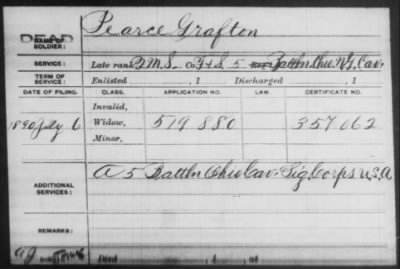 Pearce Grafton
DEAD
NAME OF SOLDIER:
SERVICE: Late rank Q.M.S., Co. F & S, 5 Battln Ohio Cav.
TERM OF SERVICE: Enlisted , 1 Discharged , 1
DATE OF FILING. CLASS. APPLICATION NO. LAW. CERTIFICATE NO.
Invalid,
1890 July 6 Widow, 519 880 357 062
Minor,
ADDITIONAL SERVICES: A 5 Battln Ohio Cav. Sig. Corps U.S.A
REMARKS:
Died , 1 , at